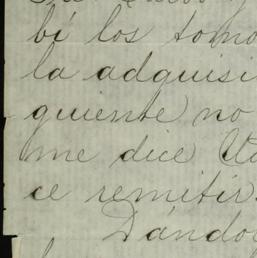 bí los tomo
la adquisi
quiente no
me dice
ce remitir.
Dándo